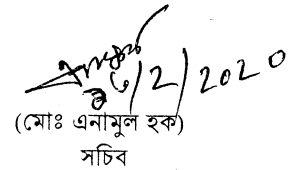 ২৬/2/2020
(মোঃ এনামুল হক)
সচিব